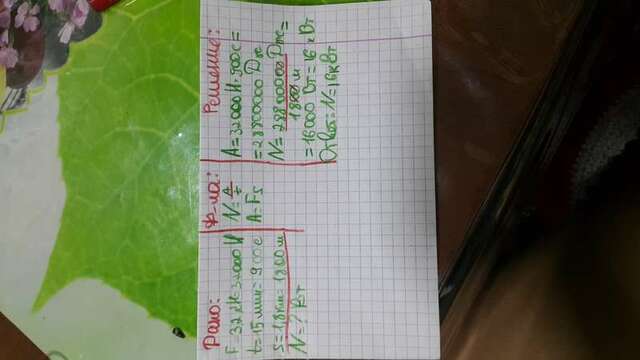 Дано:
F=32кН=32000 Н
t=15 мин=900 с
S=1,8 км=1800 м
N=? кВт
Ф-ла:
N=A/t
A=Fs
Решение:
A=32000 Н·900с=
=28800000 Дж
N=28800000 Дж=
1800 м
=16000 Вт=16 кВт
Ответ: N=16кВт